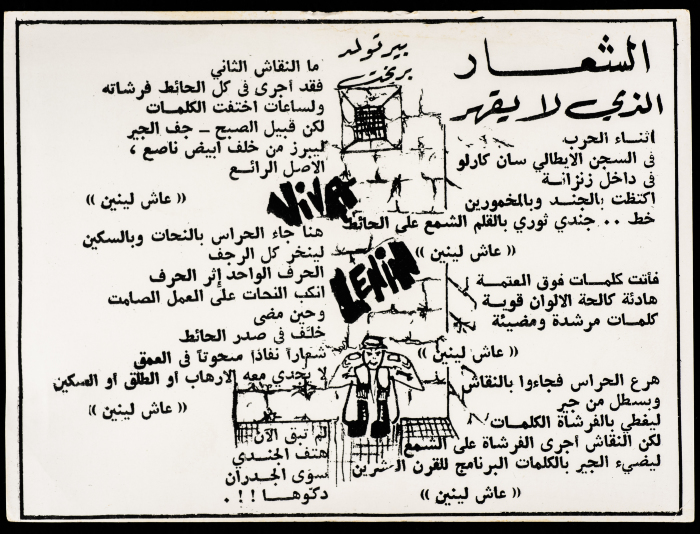 الشعـــار
الذي لا يقهر
بيرتولد
بريخت
اثنـاء الحرب
في السجن الايطالي سان كارلو
في داخل زنزانـة
اكتظت بالجنـد وبالمخمورين
خط .. جندي ثوري بالقلم الشمع على الحائط
(( عاش لينين ))
فأتت كلمـات فوق العتمـة
هادئة كالحة الالوان قويـة
كلمات مرشدة ومضيئة
(( عاش لينين ))
هرع الحراس فجاءوا بالنقاش
وبسطل من جير
ليغطي بالفرشاة الكلمـات
لكن النقاش أجرى الفرشاة على الشمع
ليضيء الجير بالكلمات البرنامج للقرن العشرين
(( عاش لينين ))
ما النقاش الثاني
فقد أجرى في كل الحائط فرشاته
ولساعات اختفت الكلمـات
لكن قبيل الصبح ــ جف الجير
ليبرز من خلف ابيض ناصع ،
الاصل الرائـع
(( عاش لينين ))
VIVA
LENIN
هنا جاء الحراس بالنحات وبالسكين
لينخر كل الرجف
الحرف الواحد إثر الحرف
انكب النحات على العمل الصامت
وحين مضى
خلـف في صدر الحائط
شعاراً نفاذا منحوتاً في العمق
لا يجدي معه الارهاب أو الطلق أو السكين
(( عاش لينين ))
لم تبق الآن
هتف الجنـدي
سوى الجـدران
دكوهـا ! ! ! .